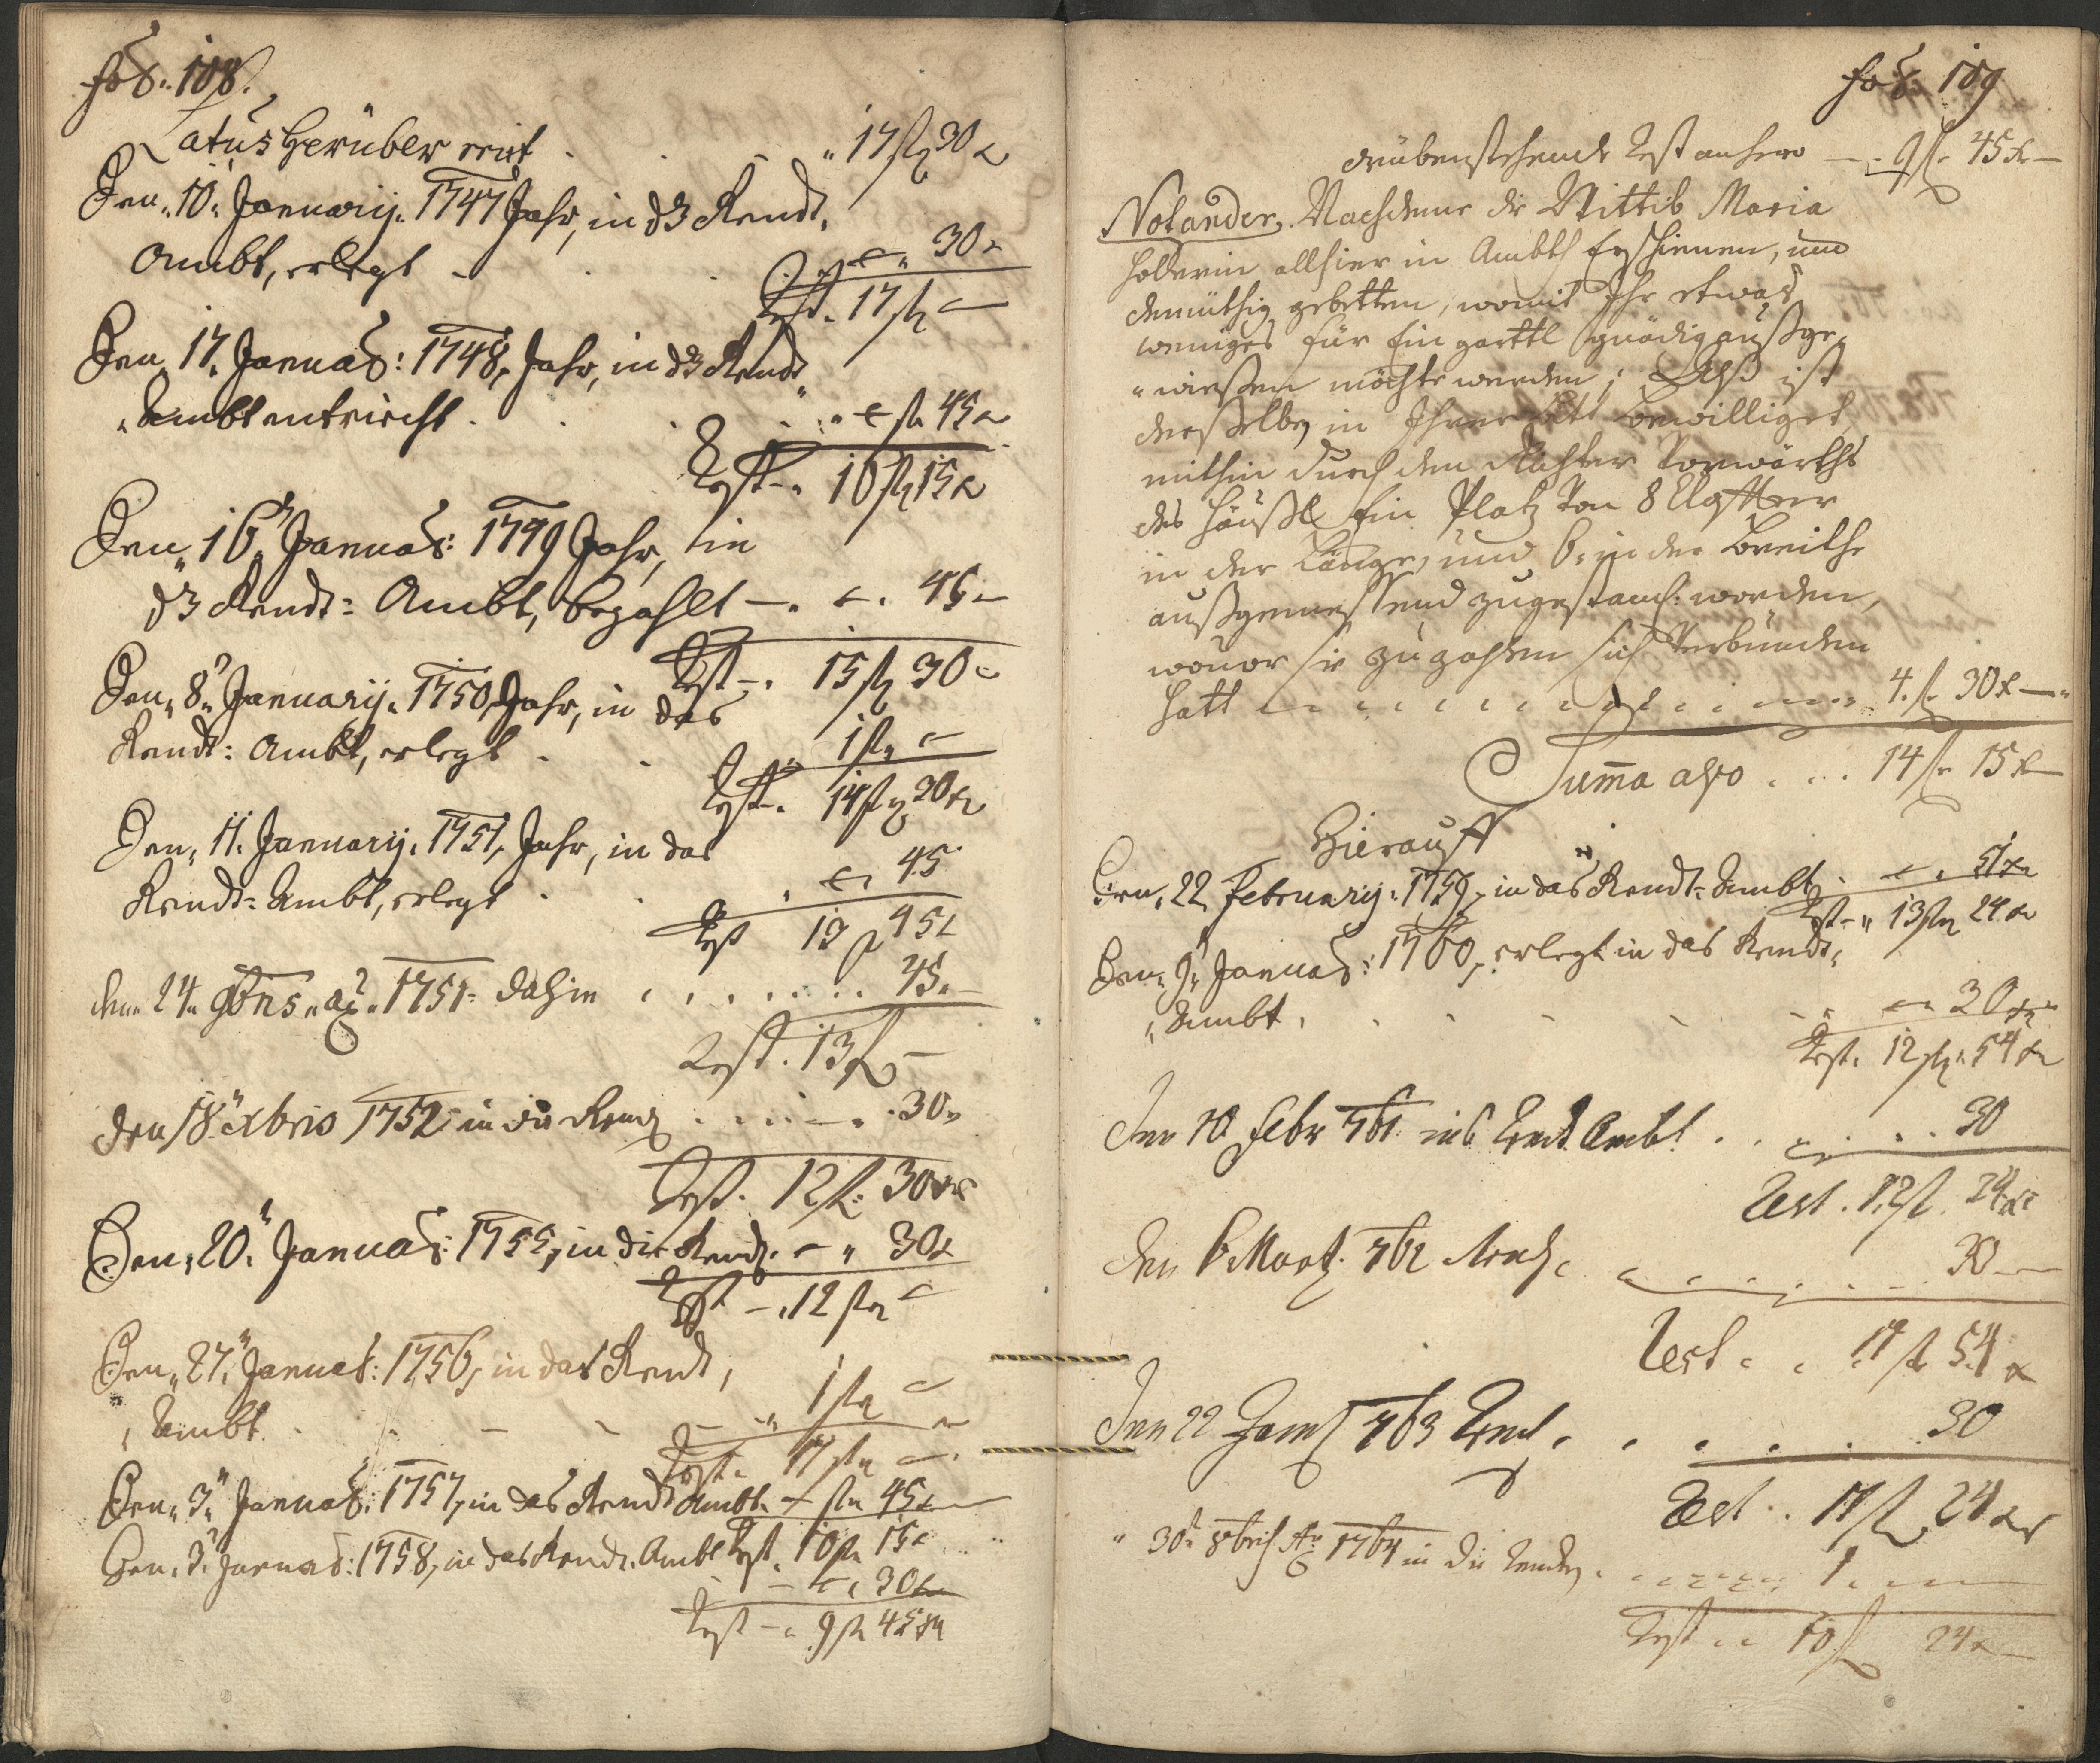 fol: 108.
Latus herüber mit . . . 17 fl 30 x
Den 10. Januarij. 1747 Jahr, in dz Rendt,
Ambt, erlegt - . . 30 x
Rest. 17 fl —
Den 17. Januar: 1748, Jahr, in dz Rendt
Ambt entricht . . . . fl 45 x
Rest 16 fl 15 x
Den 16. Januar: 1749 Jahr, in
dz Rendt= Ambt, bezahlt — . . 45 —
Rest —. 15 fl 30
Den 8. Januarij. 1750, Jahr, in das
Rendt: Ambt, erlegt . . 1 fl —
Rest. 14 fl 30 x
Den 11. Januarij. 1751, Jahr, in das
Rendt= Ambt, erlegt . . . 45
Rest 13 fl 45 x
den 24. 1751. dahin . . . . . . . 45. —
Rest. 13 fl —
den 18. xbris 1752 in die Rendt . . . . — . 30
Rest. 12 fl: 30 x
Den 20. Januar: 1755, in die Rendt. — 30 x
Rest — . 12 fl —
Den 27. Januar: 1756, in das Rendt,
Ambt . . — — 1 fl —
Rest. 11 fl —
Den 3. Januar: 1757, in das Rendt Ambt. — fl 45 x
Den 3. Januar: 1758, in das Rendt. Ambt Rest. 10 fl 15 x
— 30 x
Rest — 9 fl 45 x
fol: 109
drübenstehende Rest anhero — . 9 fl 45 x —
Notander. Nachdeme die Wittib Maria
Holderin allhier in Ambth Erschienen, und
demüthig gebetten, womit Ihr etwas
weniges für Ein garttl gnädig außge,
wießen möchte werden; Alß ist
derselben in Ihrer bitt bewilliget,
mithin durch den Richter vorwärths
des Häußl Ein Platz von 8 Claffter
in der Länge, und 6. in der Breithe
außgemessen und worden,
wovor sie zu zahlen sich Verbunden
hatt . . . . . . . . . . 4. fl 30 x —
Summa also . . . 14 fl 15 x
Hierauff
Den 22. Februarij. 1759, in das Rendt= Ambt . — . 51 x
Rest — 13 fl 24 x
Den 9. Januar: 1760, erlegt in das Rendt,
Ambt . . . . — 30 x
Rest. 12 fl 54 x
Den 10 Febr 761 ins Rent Ambt . . . . . . 30
Rest . 12 fl 24 x
den 6 Marty. 762 . . . . . . 30 —
Rest . . 11 fl 54 x
Den 22 763 Rent . . . . . . 30
Rest . 11 fl 24 x
30. 8bris Ao 1764 in die Renten . . . . . 1. — —
Rest . . 10 fl 24 x —